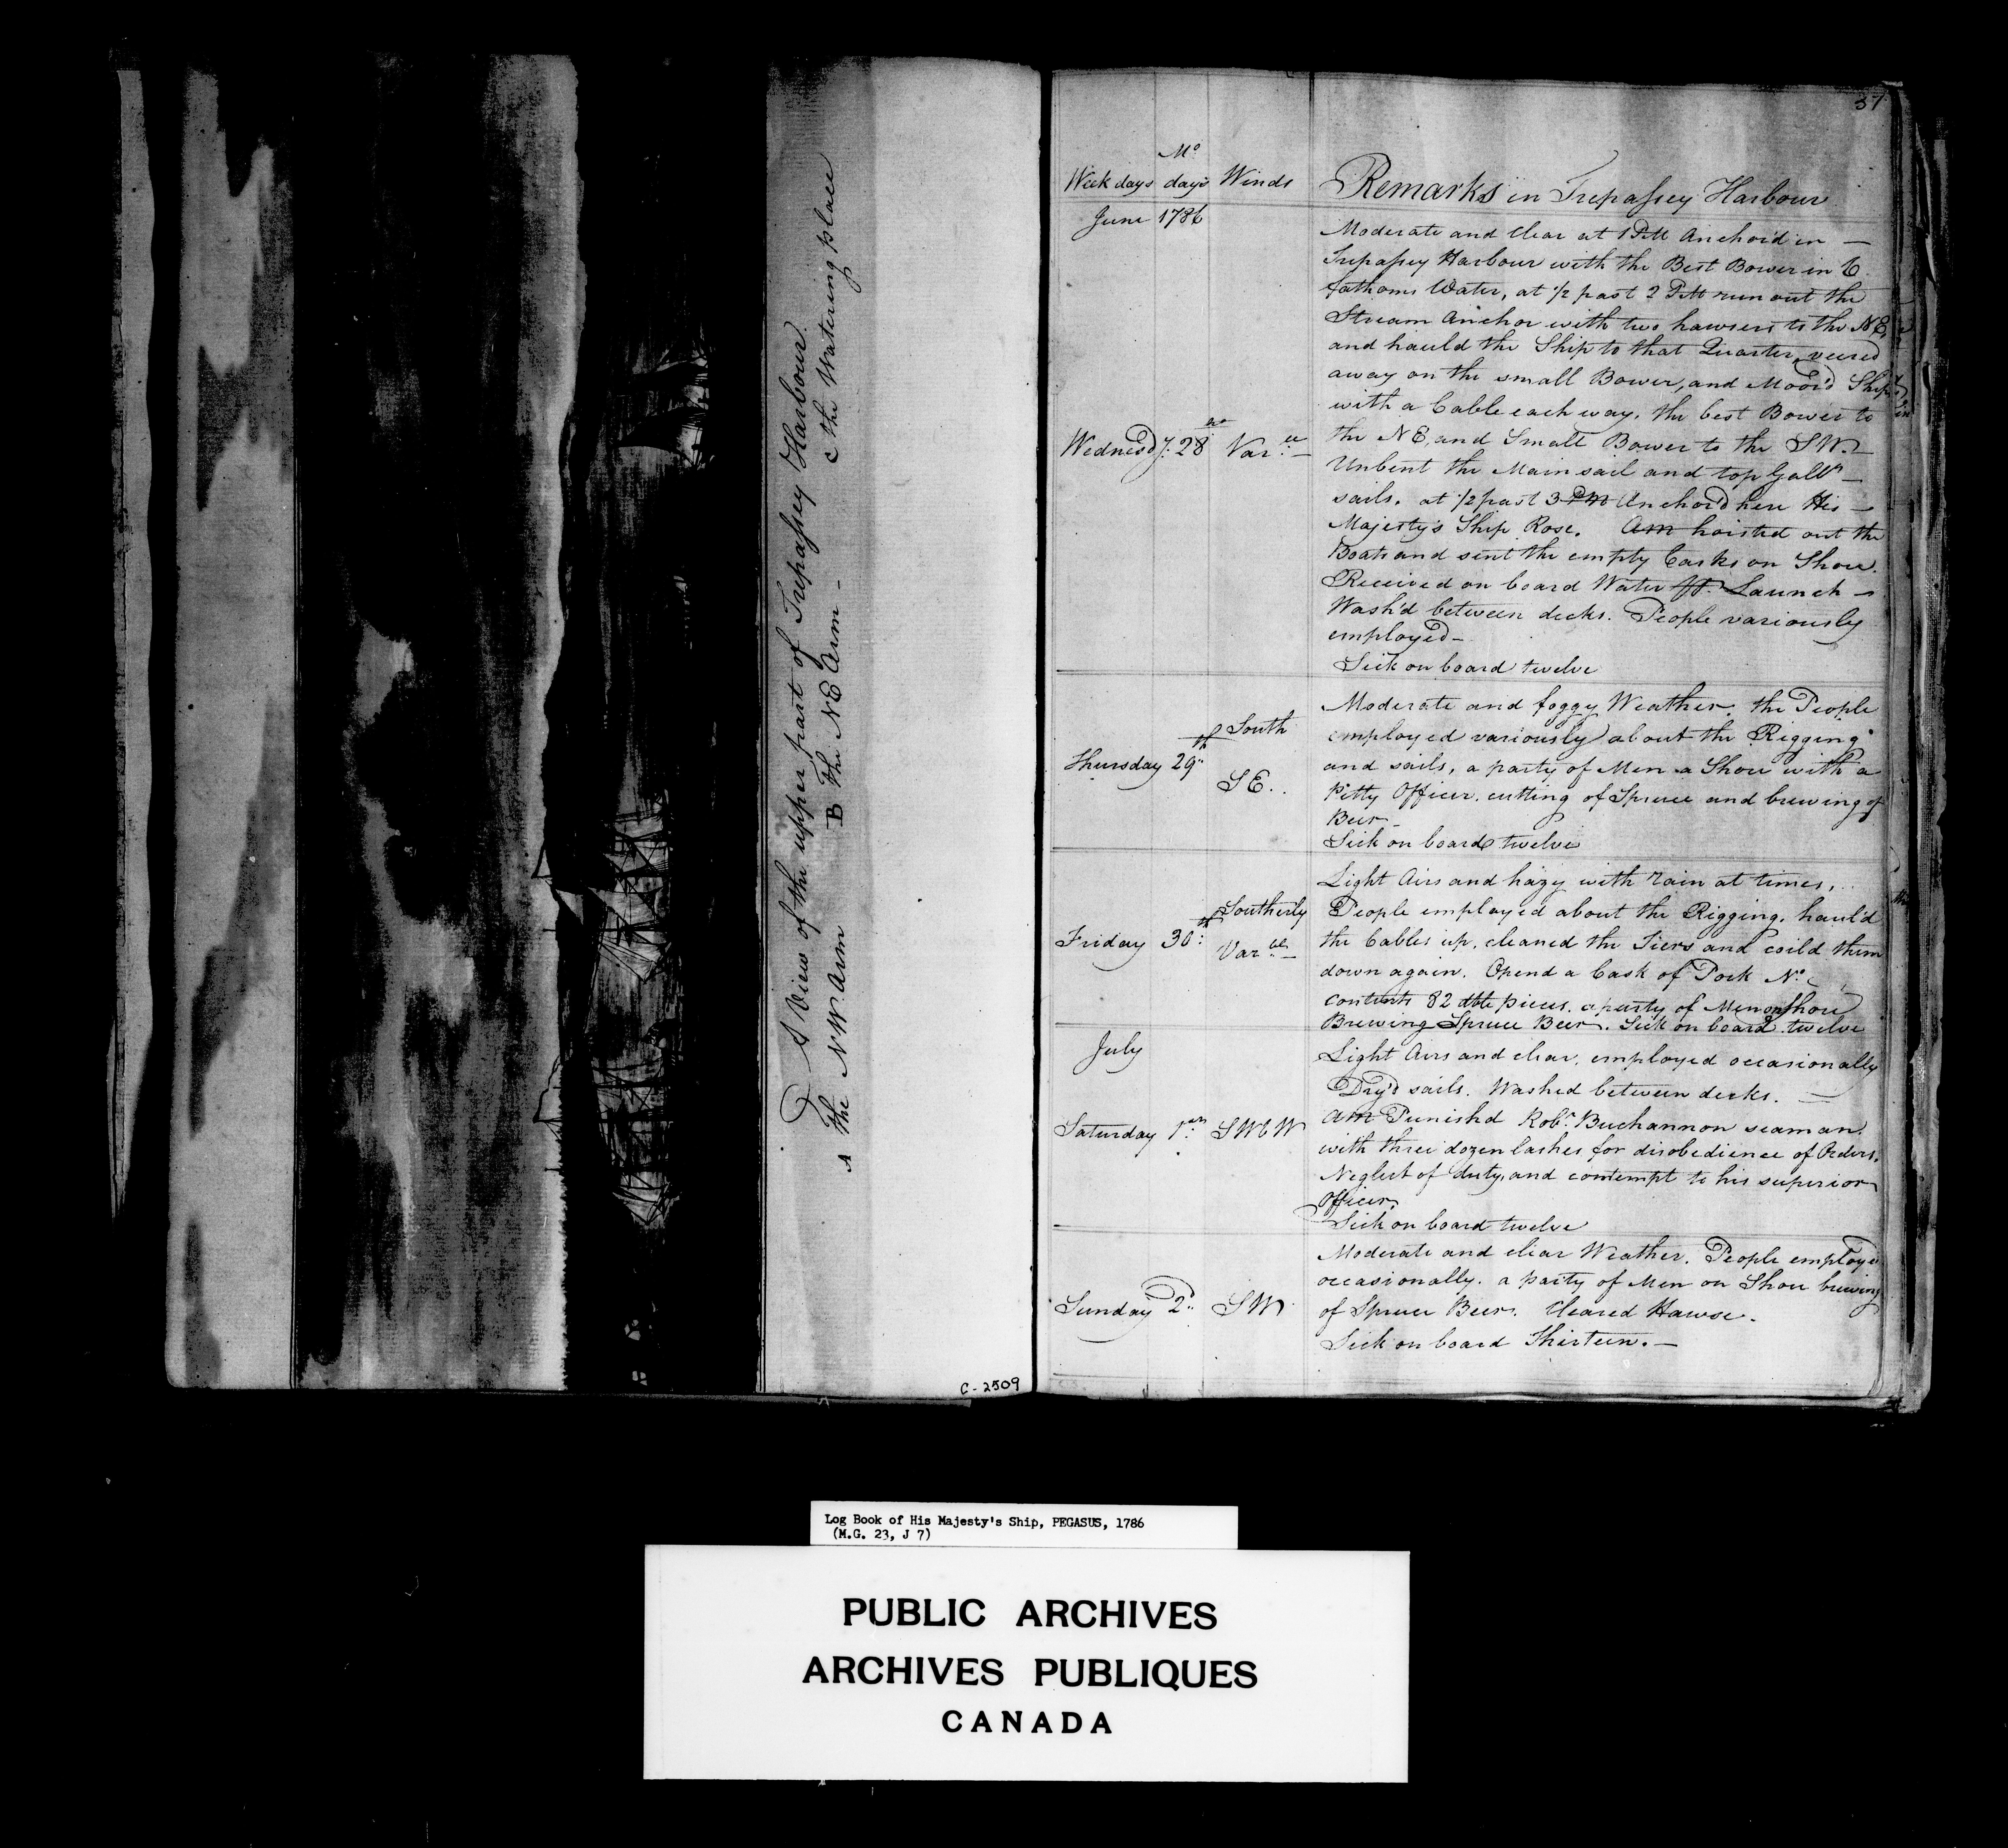 A View of the upper part of Trepassey Harbour.
A The NW Arm B The NE Arm - C the Watering place
C-2509
37
Mo
Week days days Winds Remarks in Trepassey Harbour
June 1786
Moderate and Clear at 1 PM Anchor'd in —
Trepassey Harbour with the Best Bower in 6
fathoms Water, at 1/2 past 2 PM run out the
Stream Anchor with two hawsers to the NE,
and hauld the Ship to that Quarter, veered
away on the small Bower, and Moor'd Ship
with a Cable each way, the best Bower to
Wednesdy: 28 Var:
the NE, and Small Bower to the SW. —
Unbent the Main sail and top Gallt —
sails. at 1/2 past 3 PM Anchor'd here His —
Majesty's Ship Rose. AM hoisted out the
Boats and sent the empty Casks on Shore.
Received on board Water Launch —
Wash'd between decks. People variously
employed —
Sick on board twelve
Thursday 29th South
SE..
Moderate and foggy Weather. the People
employed variously about the Rigging
and sails, a party of Men a Shore with a
Pitty Officer, cutting of Spruce and brewing of
Beer —
Sick on board twelve
Friday 30th: Southerly
Var:ble —
Light Airs and hazy with rain at times,
People employed about the Rigging. haul'd
the Cables up, cleaned the Tiers and coild them
down again. Opend a Cask of Pork No
contents 82 dble pieces. a party of Men on Shore
Brewing Spruce Beer. Sick on board twelve
July
Saturday 1st: SWbW
Light Airs and clear, employed occasionally
Dry'd sails. Washed between decks. —
AM Punishd Robt Buchannon seaman.
with three dozen lashes for disobedience of Orders,
Neglect of duty, and contempt to his superior
Officer.
Sick on board twelve
Sunday 2d: SW
Moderate and clear Weather. People employd
occasionally. a party of Men on Shore brewing
of Spruce Beer. Cleared Hawse.
Sick on board Thirteen. —
Log Book of His Majesty's Ship, PEGASUS, 1786
(M.G. 23, J 7)
PUBLIC ARCHIVES
ARCHIVES PUBLIQUES
CANADA